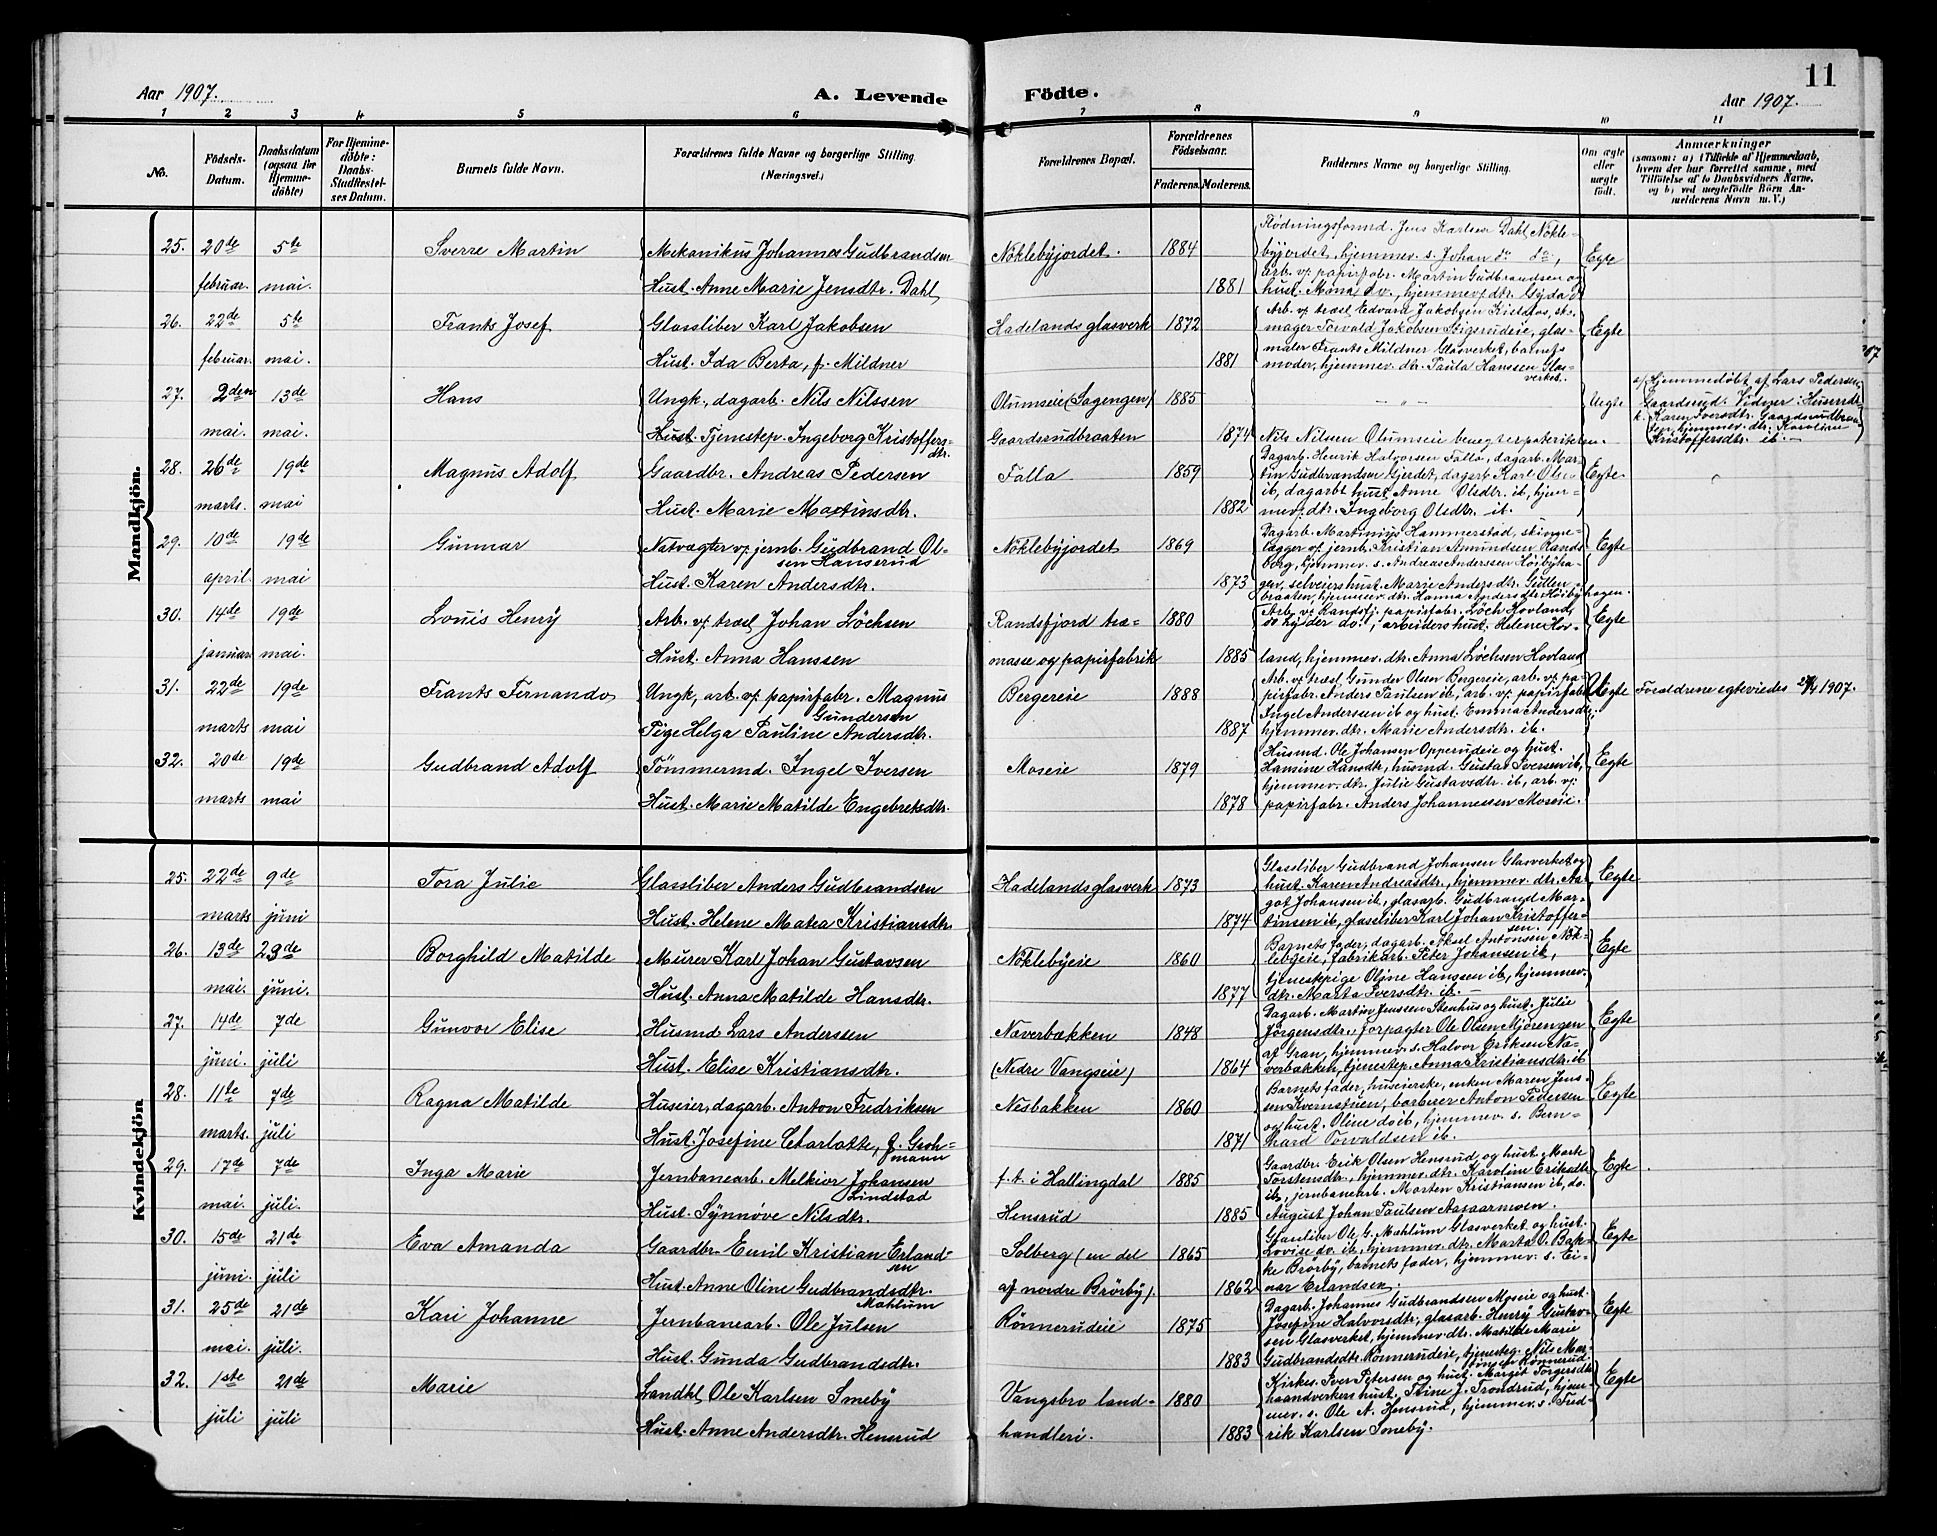 11
Aar 1907.
A. Levende Födte.
Aar 1907.
1 2 3 4 5 6 7 8 9 10 11
No.
Födsels-Datum.
Daabsdatum (ogsaa for Hjemmedöbte)
For Hjemmedöbte: Daabs-Stadfæstelses Datum.
Barnets fulde Navn.
Forældrenes fulde Navne og borgerlige Stilling. (Næringsvei.)
Forældrenes Bopæl.
Forældrenes Födselsaar.
Faderens. Moderens.
Faddernes Navne og borgerlige Stilling.
Om ægte eller uægte födt.
Anmærkninger
(saasom: a) i Tilfælde af Hjemmedaab,
hvem der har forrettet samme, med
Tilföielse af to Daabsvidners Navne,
og b) ved uægtefödte Börn An-
melderens Navn m. V.)
Mandkjön.
25. 20de februar. 5te mai. Sverre Martin
Mekanikus Johannes Gudbrandsen
Hust. Anne Marie Jensdtr. Dahl
Noklebyjordet. 1884 1881
Flödningsformd. Jens Karlsen Dahl, Nökle-
byjordet, hjemmev. s. Johan do do.,
arb. v/ papirfabr. Martin Gudbrandsen og
hust. Mina do., hjemmev. dtr. Gyda
Egte
26. 22de februar. 5te mai. Frants Josef
Glassliber Karl Jakobsen
Hust. Ida Berta, f. Mildner
Hadelands glasverk 1872 1881
Arb. v/ træsl. Edvard Jakobsen Kieldaas, sko-
mager Torvald Jakobsen Stigerudeie, glas-
maler Frants Mildner Glasverket, barnets
moder, hjemmev. dtr. Paula Hanssen Glas-
verket.
Egte
27. 2den mai. 13de mai. Hans
Ungk., dagarb. Nils Nilssen
Hust. Tjenestep. Ingeborg Kristoffers-
dtr.
Olumseie (Sagengen) 1885
Gaardsrudbraaten 1874
— „ —
Nils Nilsen Olumseie benegter pateriteten.
Uegte
a/ Hjemmedöbt af Lars Pedersen
Gaardsrud. Vidner: Husmds
k. Karen Iversdtr. Gaardsrudbraa-
ten, hjemmev. dtr. Karoline
Kristoffersdtr. ib. —
28. 26de marts. 19de mai Magnus Adolf
Gaardbr. Andreas Pedersen
Hust. Marie Martinsdtr.
Falla 1859 1882
Dagarb. Henrik Halvorsen Falla, dagarb. Mar-
tin Gudbrandsen Gjerdet, dagarb. Karl Olsen
ib, dagarbt hust. Anne Olsdtr. ib, hjem-
mev. dtr. Ingeborg Olsdtr. ib.
Egte.
29. 10de april. 19de mai Gunnar
Natvægter v/ jernb. Gudbrand Ol-
sen Hanserud
Hust. Karen Andersdtr.
Nöklebyjordet 1869 1873
Dagarb. Martinius Hammerstad, skinne-
lægger v/ jernb. Kristian Amundsen Rands-
borg, hjemmev. s. Andreas Anderssen Höibyha-
gen, selveiers hust. Marie Andersdtr. Gullen-
braaten, hjemmev. dtr. Hanna Andersdtr Höibyhagen.
Egte
30. 14de januar. 19de mai. Louis Henry
Arb. v/ træsl Johan Löchsen
Hust. Anna Hanssen
Randsfjord træ-
masse og papirfabrik
1880 1885
Arb. v/ Randsfj. papirfabr. Löch Hovland,
do Hylder do., arbeiders hust. Helene Hov-
land, hjemmev. dtr. Anna Löchsen Hovland
Egte
31. 22de marts 19de mai Frants Fernando
Ungk., arb. v/ papirfabr. Magnus
Gundersen
Pige Helga Pauline Andersdtr.
Bergereie 1888 1887
Arb. v/ træsl. Gunder Olsen Bergereie, arb. v/ pa-
pirfabr. Anders Paulsen ib, arb. v/ papirfabr.
Ingel Anderssen ib og hust. Emma Andersdtr.,
hjemmev. dtr. Marie Andersdtr. ib.
Uegte
Foraldrene egteviedes 28/4 1907.
32. 20de marts 19de mai Gudbrand Adolf
Tömmermd. Ingel Iversen
Hust. Marie Matilde Engebretsdtr.
Moseie 1879 1878
Husmd. Ole Johansen Opperudeie og hust.
Hamine Hansdtr, husmd. Gustav Iversen ib,
hjemmev. dtr. Julie Gustavsdtr. ib, arb. v/
papirfabr. Anders Johannessen Moseie.
Egte
Kvindekjön
25. 22de marts 9de juni Tora Julie
Glassliber Anders Gudbrandsen
Hust. Helene Matea Kristiansdtr.
Hadelands glasverk 1873 1874
Glassliber Gudbrand Johansen Glasverket og
hust. Karen Andreasdtr., hjemmev. dtr. Aa-
got Johansen ib, glasarb. Gudbrand Mar-
tinsen ib, glassliber Karl Johan Kristoffer-
sen.
Egte
26. 13de mai. 23de juni. Borghild Matilde
Murer Karl Johan Gustavsen
Hust. Anna Matilde Hansdtr.
Nöklebyeie 1860 1877
Barnets fader, dagarb. Aksel Antonsen Nök-
lebyeie, fabrikarb. Peter Johansen ib,
tjenestepige Oline Hanssen ib, hjemmev.
dtr. Marta Iversdtr. ib. —
Egte
27. 14de juni. 7de juli Gunvor Elise
Husmd Lars Anderssen
Hust. Elise Kristiansdtr.
Naverbækken
(Nedre Vangseie)
1848 1864
Dagarb. Martin Jenssen Stenhus og hust. Julie
Jörgensdtr., forpagter Ole Olsen Mjörengen
af Gran, hjemmev. s. Halvor Eriksen Na-
verbækken, tjenestep. Anna Kristiansdtr. ib
Egte
28. 11te marts. 7de juli Ragna Matilde
Huseier, dagarb. Anton Fredriksen
Hust. Josefine Charlotte, f. Groh-
mann
Nesbakken 1860 1871
Barnets fader, huseierske, enken Maren Jens-
sen Kvernstuen, barberer Anton Pedersen
og hust. Oline do ib, hjemmev. s. Bern-
hard Torvaldsen ib.
Egte
29. 17de mai. 7de juli. Inga Marie
Jernbanearb. Melkior Johansen
Lindstad
Hust. Synnöve Nilsdtr.
f. t. i Hallingdal
Hensrud
1885 1885
Gaardbr. Erik Olsen Hensrud og hust. Marte
Torstensdtr., hjemmev. dtr. Karoline Eriksdtr
ib, jernbanearb. Morten Kristiansen ib, do.
August Johan Paulsen Aasaarmoen.
Egte
30. 15de juni. 21de juli Eva Amanda
Gaardbr. Emil Kristian Erland-
sen
Hust. Anne Oline Gudbrandsdtr.
Mahlum
Solberg (en del
af nordre Brörby)
1865 1862
Glassliber Ole G. Mahlum Glasverket og hust.
Lovise do. ib, hjemmev. dtr. Marta O. Bak-
ke Brörby, barnets fader, hjemmev. s. Ei-
nar Erlandsen.
Egte
31. 25de mai. 21de juli. Kari Johanne
Jernbanearb. Ole Julsen
Hust. Gunda Gudbrandsdtr.
Rönnerudeie 1875 1883
Dagarb. Johannes Gudbrandsen Moseie og hust.
Josefine Halvorsdtr., glasarb. Henry Gustav-
sen Glasverket, hjemmev. dtr. Matilde Marie
Gudbrandsdtr. Rönnerudeie, tjenesteg. Nils Mar-
tinsen Rönnerud
Egte
32. 1ste juli 21de juli Marie
Landhl. Ole Karlsen Smeby
Hust. Anne Andersdtr. Hensrud
Vangsbro land-
handleri.
1880 1883
Kirkes. Iver Petersen og hust. Margit Torgersdtr
haandverkers hust. Stine J. Trondrud, hjem-
mev. s. Ole A. Hensrud, hjemmev. s. Fred-
rik Karlsen Smeby.
Egte